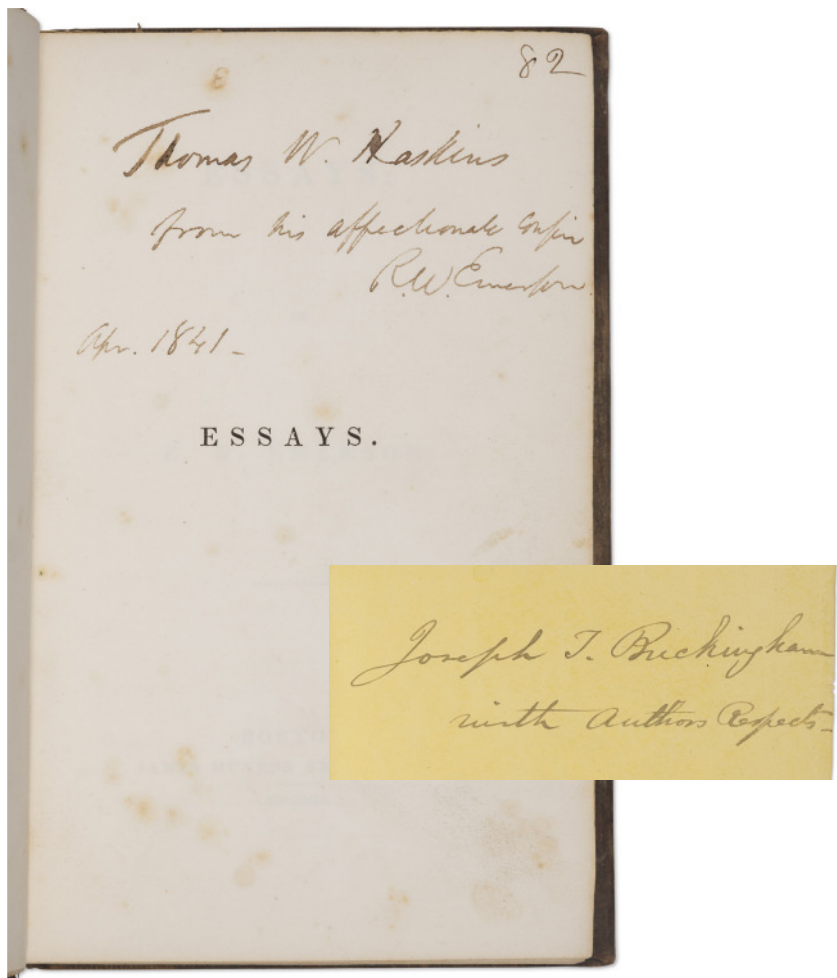 82
Thomas W. Haskins
from his affectionate cousin
R.W. Emerson.
Apr. 1841 -
ESSAYS.
Joseph T. Buckingham
with Authors Respects -